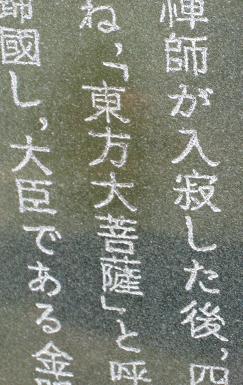 禅師が入寂した後,四
ね,「東方大菩薩」と呼
帰國し,大臣である金